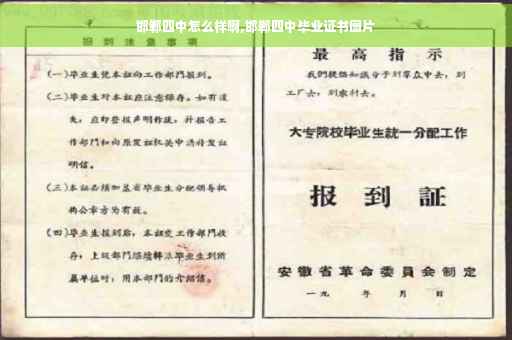 邯郸四中怎么样啊,邯郸四中毕业证书图片
报到注意事项
(一)毕业生凭本证向工作部门报到。
(二)毕业生对本证应注意保存。如有遗
失,应即登报声明作废,并报告工
作部门和向原发证机关申请补发证
明信。
(三)本证必须加盖省毕业生分配领导机
构公章方为有效。
(四)毕业生报到后,本证交工作部门收
存;上级部门继续转派毕业生到所
属单位时,用本部门的介绍信。
最高指示
我们提倡知识分子到羣众中去,到
工厂去,到农村去。
大专院校毕业生统一分配工作
报到証
安徽省革命委員会制定
一九 年 月 日